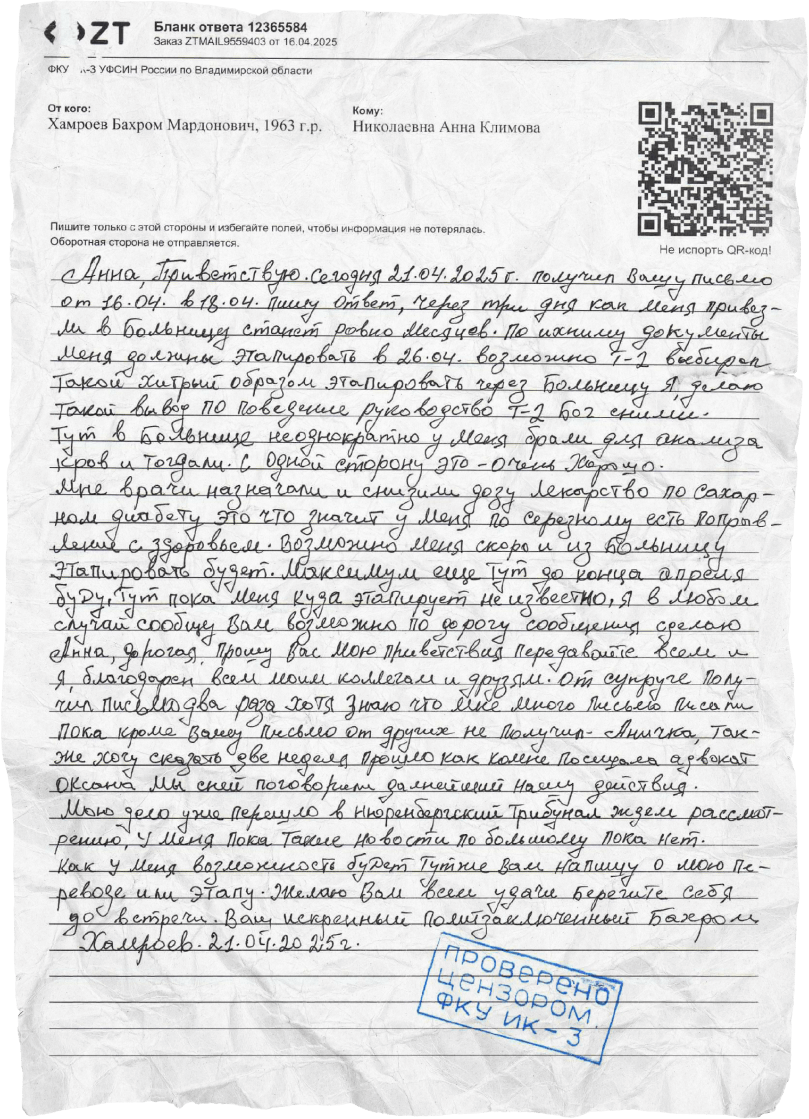 ZT
Бланк ответа 12365584
Заказ ZTMAIL9559403 от 16.04.2025
ФКУ К-3 УФСИН России по Владимирской области
От кого:
Хамроев Бахром Мардонович, 1963 г.р.
Кому:
Николаевна Анна Климова
Пишите только с этой стороны и избегайте полей, чтобы информация не потерялась.
Оборотная сторона не отправляется.
Не испорть QR-код!
Анна, Приветствую. Сегодня 21.04.2025г. получил Вашу письмо
от 16.04. в 18.04. пишу ответ, через три дня как меня привез-
ли в Больницу станет ровно месяцев. По ихниму документы
меня должны этапировать в 26.04. возможно Т-2 выбирал
такой хитрый образом этапировать через Больницу Я делаю
такой вывод по поведение руководство Т-2 Бог сними.
Тут в Больнице неоднократно у меня брали для анализа
кров и тогдали. С одной сторону это - очень хорошо.
Мне врачи назначали и снизили дозу лекарство по сахар-
ном диабету это что значит у меня по серезному есть поправ-
ление с здоровьем. Возможно меня скоро и из Больницу
этапировать будет. Максимум еще тут до конца апреля
буду, тут пока меня куда этапирует не известно, я в любом
случай сообщу Вам возможно по дорогу сообщения сделаю
Анна, дорогая, прошу Вас мою приветствия передавайте всем и
я, благодарен всем моим коллегам и друзьям. От супруге полу-
чил письмо два раза хотя знаю что мне много письмо писали
пока кроме Вашу письмо от других не получил. Аничка, так-
же хочу сказать две неделя прошло как комне посещала адвокат
Оксана мы сней поговорили далнейший нашу действия.
Мою дело уже перешло в Нюренбергский Трибунал ждем рассмот-
рению, у меня пока такие новости по большому пока нет.
Как у меня возможность будет тутже Вам напишу о мою пе-
ревозе или этапу. Желаю Вам всем удачи берегите себя
до встречи. Ваш искренный политзаключенный Бахром
Хамроев. 21.04.2025г.
ПРОВЕРЕНО
ЦЕНЗОРОМ.
ФКУ ИК-3